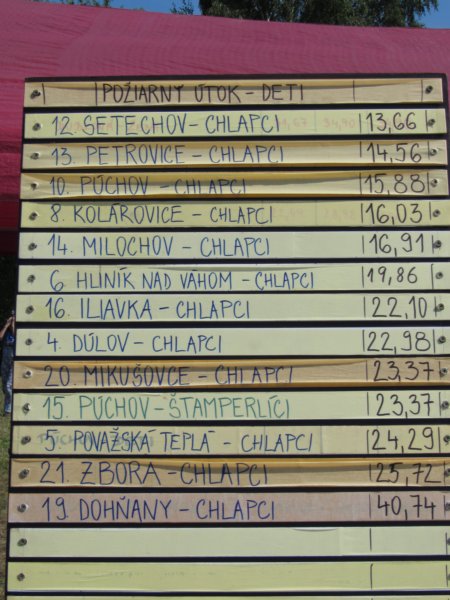 POŽIARNY ÚTOK - DETI
12. SETECHOV - CHLAPCI 13,66
13. PETROVICE - CHLAPCI 14,56
10. PÚCHOV - CHLAPCI 15,88
8. KOLÁROVICE - CHLAPCI 16,03
14. MILOCHOV - CHLAPCI 16,91
6 HLINÍK NAD VÁHOM - CHLAPCI 19,86
16. ILIAVKA - CHLAPCI 22,10
4. DÚLOV - CHLAPCI 22,98
20. MIKUŠOVCE - CHLAPCI 23,37
15. PÚCHOV - ŠTAMPERLÍCI 23,37
5. POVAŽSKÁ TEPLÁ - CHLAPCI 24,29
21. ZBORA - CHLAPCI 25,72
19. DOHŇANY - CHLAPCI 40,74